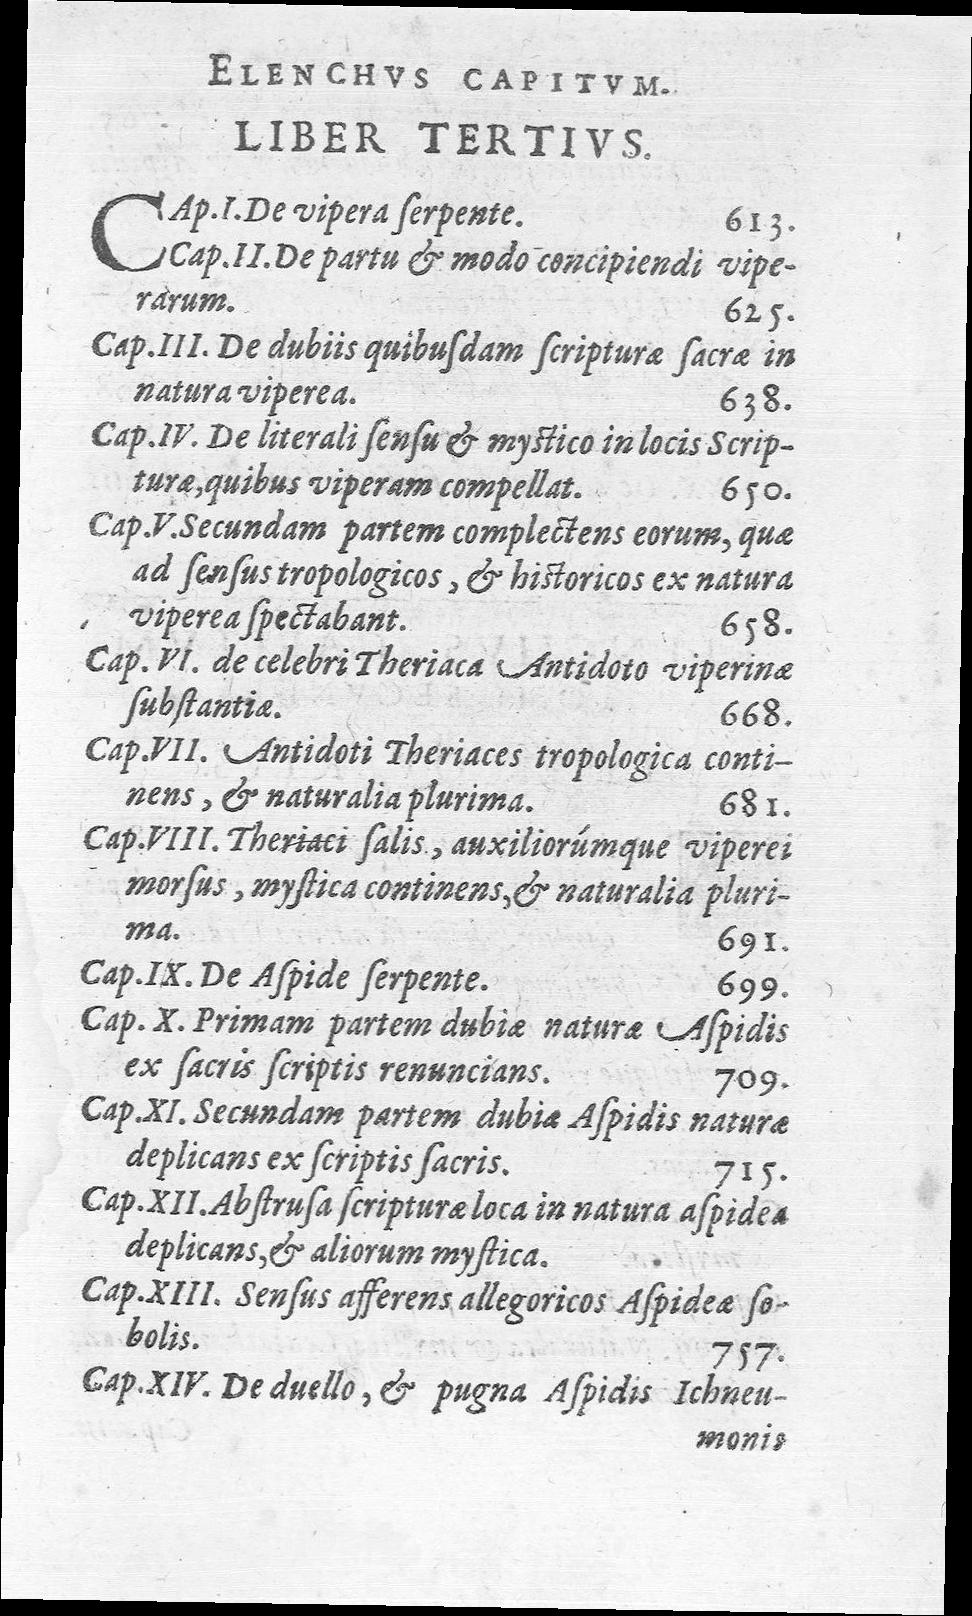 ELENCHVS CAPITVM.
LIBER TERTIVS.
CAp.I.De vipera ſerpente. 613.
Cap.II.De partu & modo concipiendi vipe-
rarum. 625.
Cap.III. De dubiis quibuſdam ſcripturæ ſacræ in
natura viperea. 638.
Cap.IV. De literali ſenſu & myſtico in locis Scrip-
turæ,quibus viperam compellat. 650.
Cap.V.Secundam partem complectens eorum, quæ
ad ſenſus tropologicos, & hiſtoricos ex natura
viperea ſpectabant. 658.
Cap. VI. de celebri Theriaca Antidoto viperinæ
ſubſtantiæ. 668.
Cap.VII. Antidoti Theriaces tropologica conti-
nens, & naturalia plurima. 681.
Cap.VIII. Theriaci ſalis, auxiliorúmque viperei
morſus, myſtica continens,& naturalia pluri-
ma. 691.
Cap.IX. De Aſpide ſerpente. 699.
Cap. X. Primam partem dubiæ naturæ Aſpidis
ex ſacris ſcriptis renuncians. 709.
Cap.XI. Secundam partem dubiæ Aſpidis naturæ
deplicans ex ſcriptis ſacris. 715.
Cap.XII.Abſtruſa ſcripturæ loca in natura aſpidea
deplicans,& aliorum myſtica.
Cap.XIII. Senſus afferens allegoricos Aſpideæ ſo-
bolis. 757.
Cap.XIV. De duello, & pugna Aſpidis Ichneu-
monis